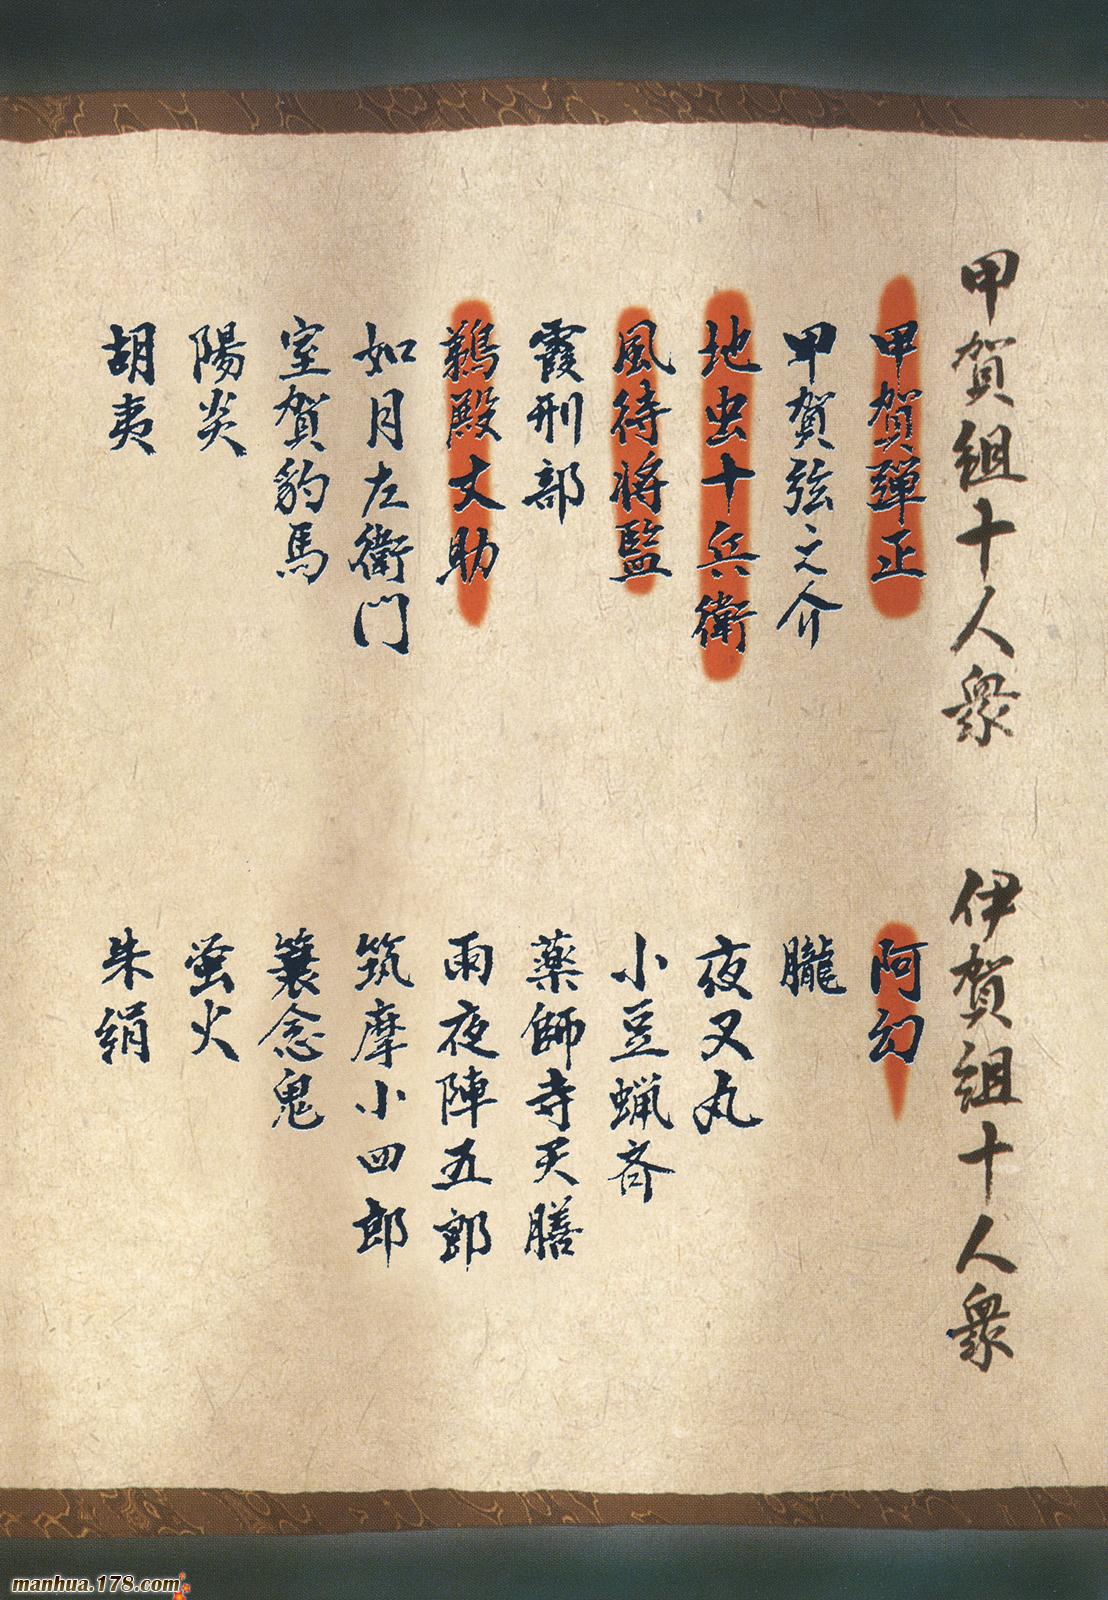 甲賀組十人衆
甲賀弾正
甲賀弦之介
地虫十兵衛
風待将監
霞刑部
鵜殿丈助
如月左衛門
室賀豹馬
陽炎
胡夷
伊賀組十人衆
阿幻
朧
夜叉丸
小豆蝋斉
薬師寺天膳
雨夜陣五郎
筑摩小四郎
蓑念鬼
蛍火
朱絹
manhua.178.com